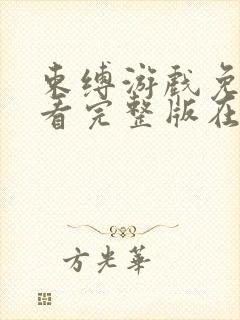 束缚游戏免
看完整版在
方光華